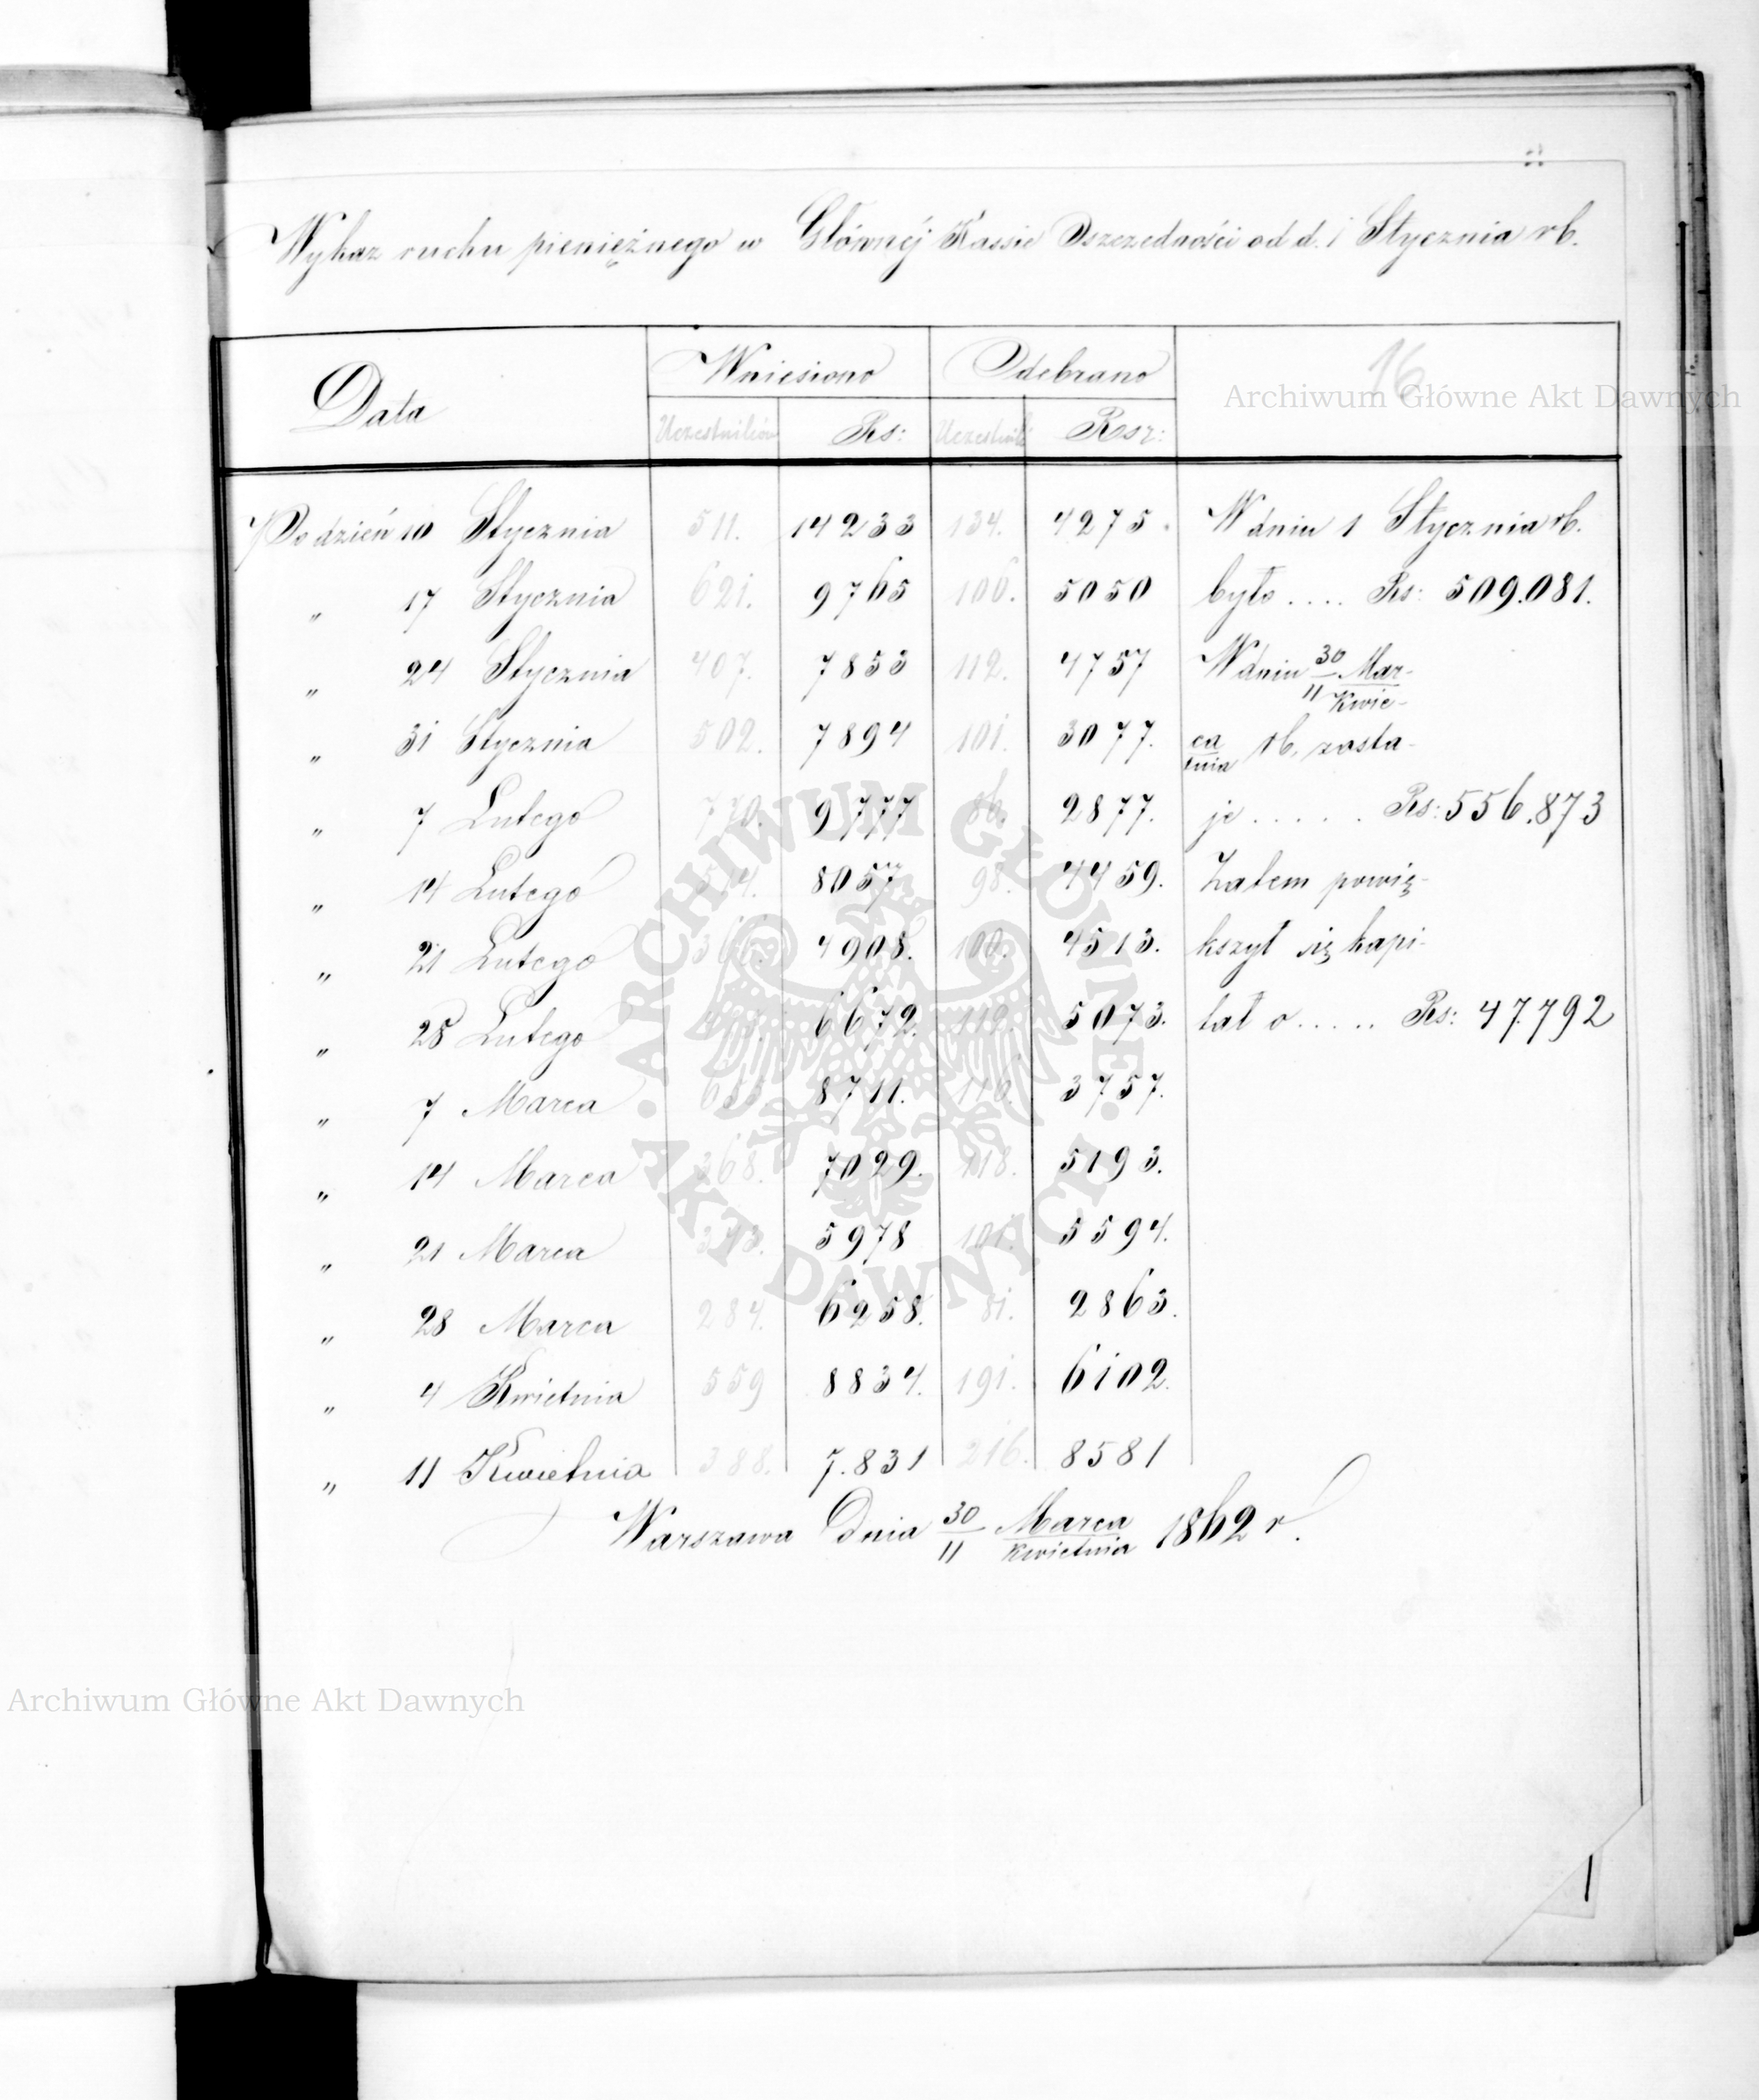 Wykaz ruchu pieniężnego w Głównéj Kassie Oszczędności od d. 1 Stycznia rb.
16
Archiwum Główne Akt Dawnych
Data Wniesiono Odebrano
Uczestników Rs: Uczestnik Rsr:
Po dzień 10 Stycznia 511. 14233 134. 4275. W dniu 1 Stycznia rb.
" 17 Stycznia 621. 9765 106. 5050 było .... Rs: 509.081.
" 24 Stycznia 407. 7853 112. 4757 W dniu 30/11 Mar-/Kwie-
" 31 Stycznia 502. 7894 101. 3077. ca/tnia rb. zosta-
" 7 Lutego 770. 9777 86. 2877. je ..... Rs: 556.873
" 14 Lutego 8057 98. 4459. Zatem powię-
" 21 Lutego 4908. 100. 4513. kszył się kapi-
" 28 Lutego 6672. 112. 5073. tał o ..... Rs: 47.792
" 7 Marca 8711. 116. 3757.
" 14 Marca 368. 7029. 118. 5193.
" 21 Marca 5978 101. 5594.
" 28 Marca 284. 6258. 81. 2863.
" 4 Kwietnia 559 8834. 191. 6102.
" 11 Kwietnia 388. 7.831 216. 8581
Warszawa Dnia 30/11 Marca/Kwietnia 1862 r.
ARCHIWUM GŁÓWNE AKT DAWNYCH
Archiwum Główne Akt Dawnych